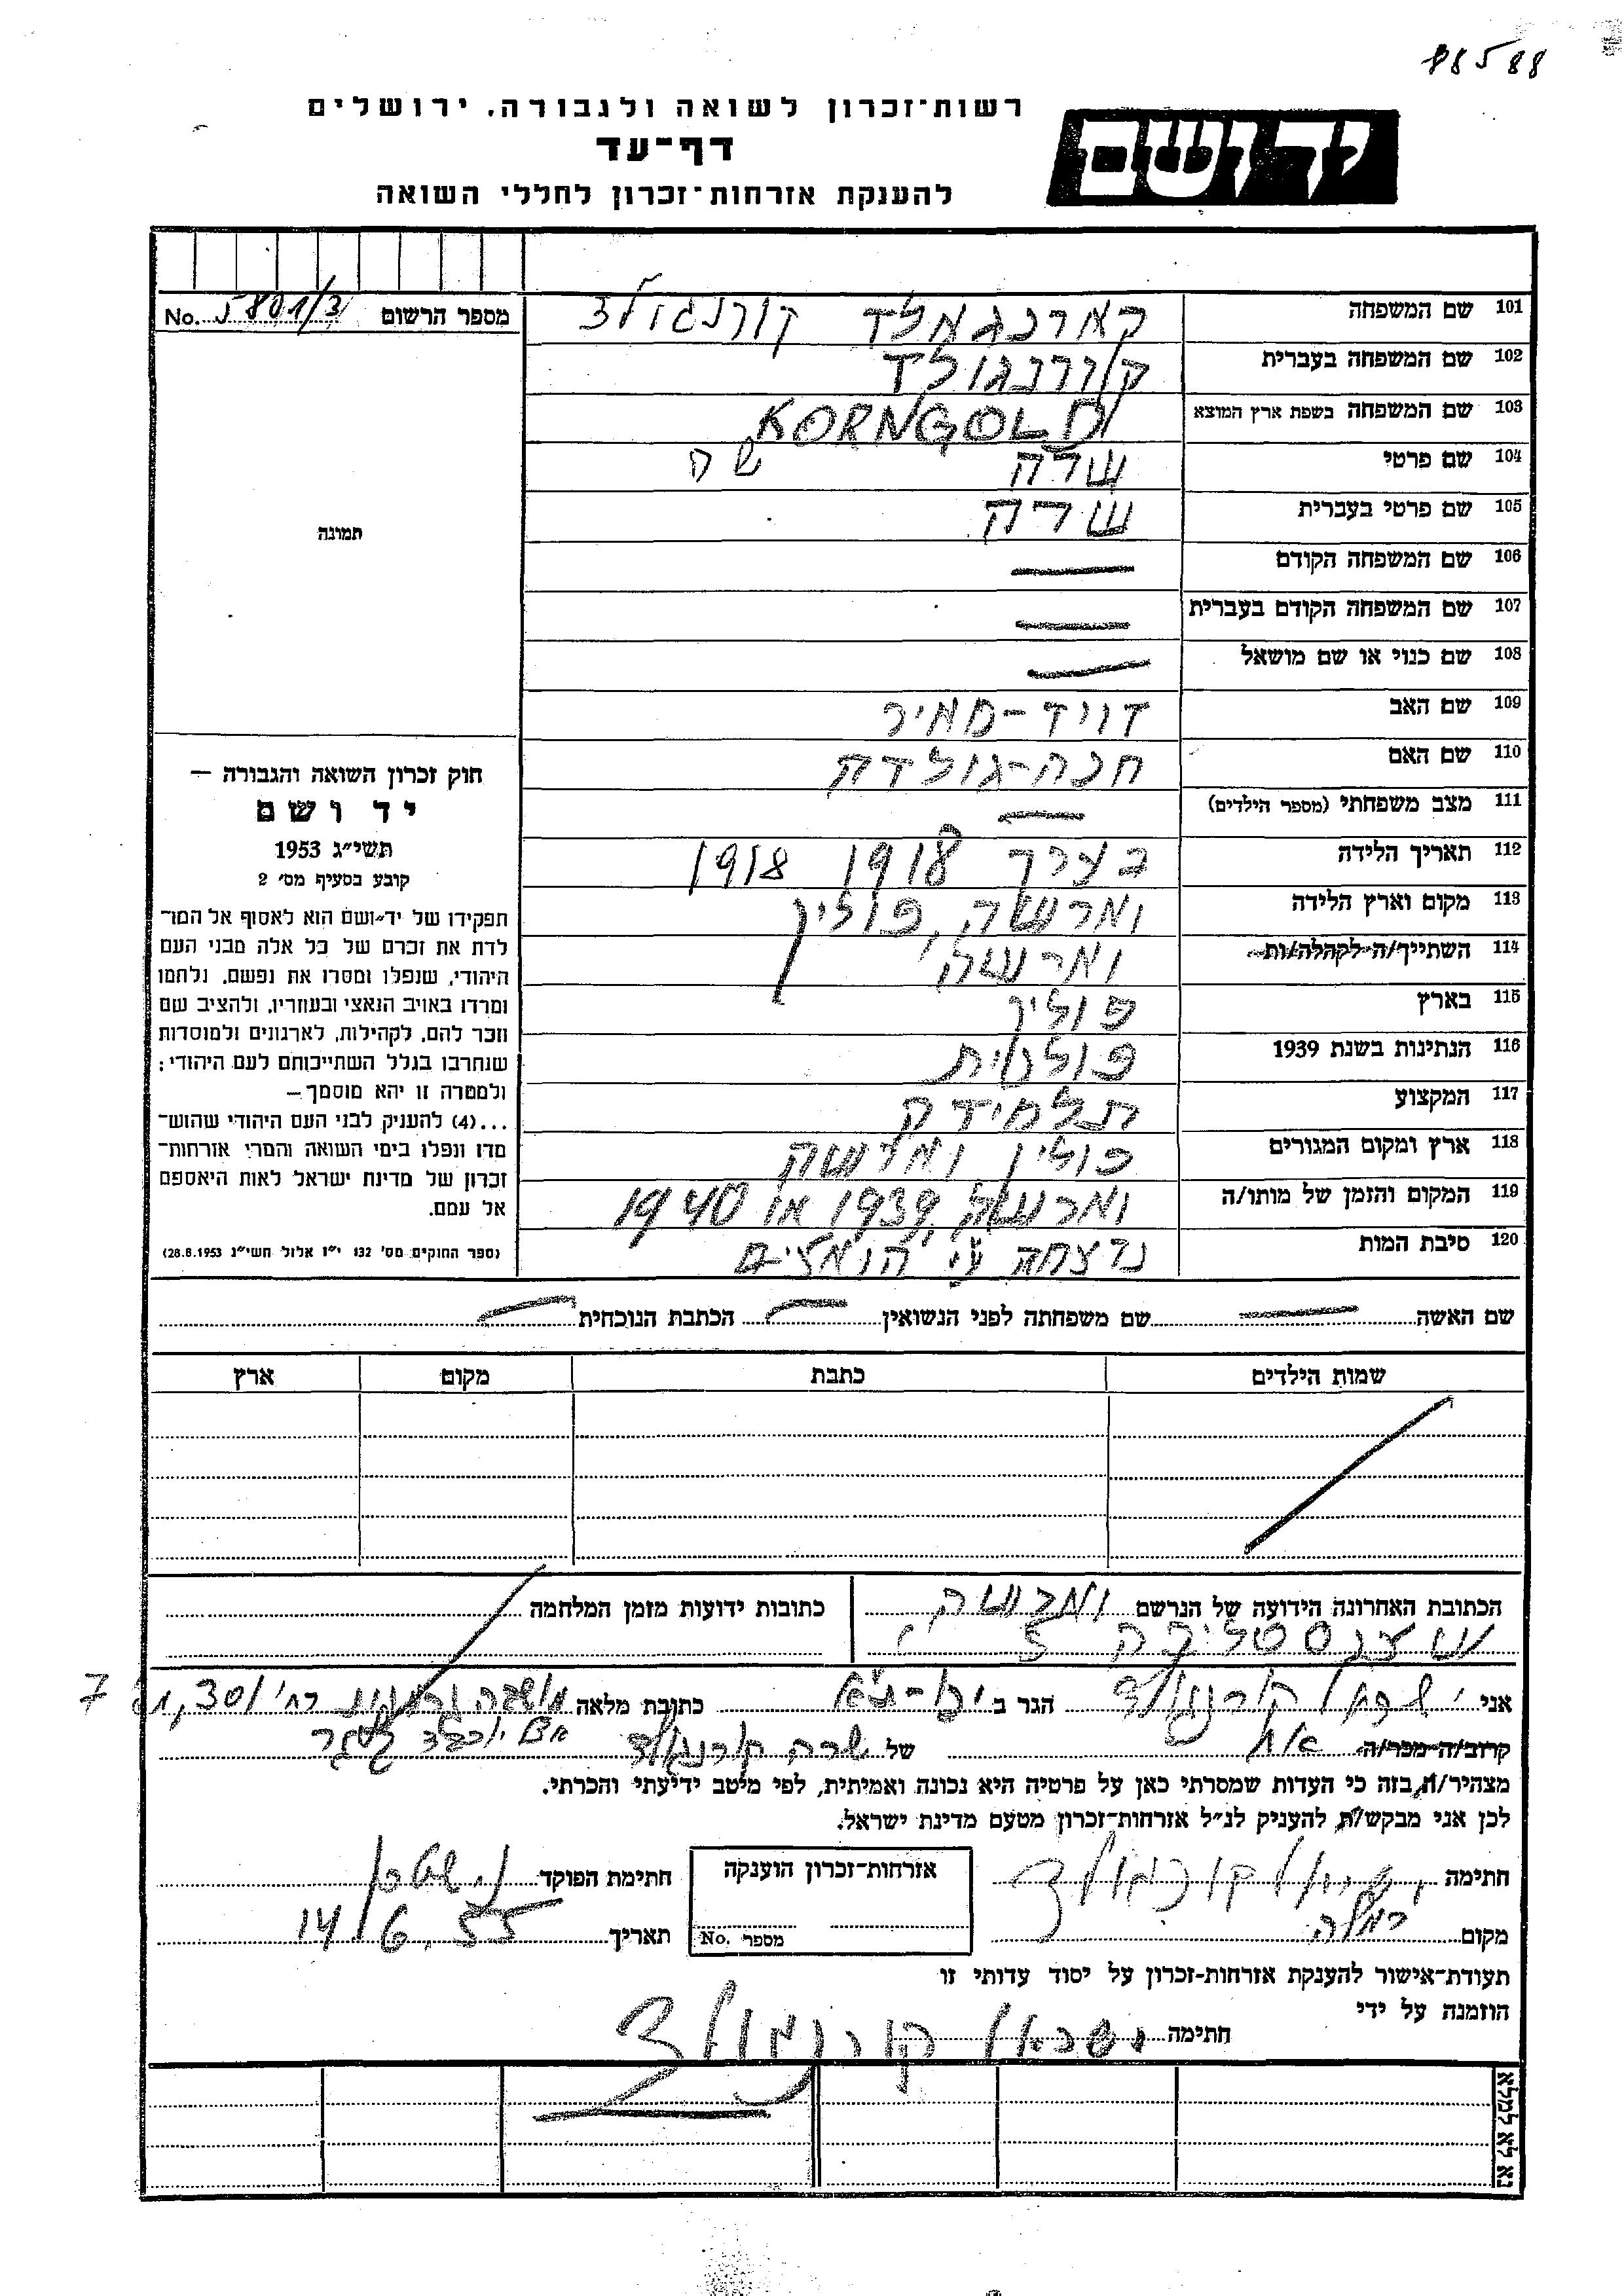 88588
רשות־זכרון לשואה ולגבורה, ירושלים
יד ושם
דף־עד
להענקת אזרחות־זכרון לחללי השואה
מספר הרשום No. 5801/3
101 שם המשפחה קארנגאלד קורנגולד
102 שם המשפחה בעברית קורנגולד
103 שם המשפחה בשפת ארץ המוצא KORNGOLD
104 שם פרטי שרה שה
105 שם פרטי בעברית שרה
106 שם המשפחה הקודם —
107 שם המשפחה הקודם בעברית —
108 שם כנוי או שם מושאל —
109 שם האב דויד-מאיר
110 שם האם חנה-גולדה
111 מצב משפחתי (מספר הילדים) —
112 תאריך הלידה בערך 1918 1918
113 מקום וארץ הלידה ווארשה, פולין
114 השתייך/ה לקהלה/ות ווארשה
115 בארץ פולין
116 הנתינות בשנת 1939 פולנית
117 המקצוע תלמידה
118 ארץ ומקום המגורים פולין ווארשה
119 המקום והזמן של מותו/ה ווארשה, 1939 או 1940
120 סיבת המות נרצחה ע"י הנאצים
תמונה
חוק זכרון השואה והגבורה —
יד ושם
תשי״ג 1953
קובע בסעיף מס׳ 2
תפקידו של יד־ושם הוא לאסוף אל המו־
לדת את זכרם של כל אלה מבני העם
היהודי, שנפלו ומסרו את נפשם, נלחמו
ומרדו באויב הנאצי ובעוזריו, ולהציב שם
וזכר להם, לקהילות, לארגונים ולמוסדות
שנחרבו בגלל השתייכותם לעם היהודי;
ולמטרה זו יהא מוסמך —
...(4) להעניק לבני העם היהודי שהוש־
מדו ונפלו בימי השואה והמרי אזרחות־
זכרון של מדינת ישראל לאות היאספם
אל עמם.
(ספר החוקים מס׳ 132 י״ז אלול תשי״ג 28.8.1953)
שם האשה — שם משפחתה לפני הנשואין — הכתבת הנוכחית —
שמות הילדים כתבת מקום ארץ
הכתובת האחרונה הידועה של הנרשם ווארשה
5
כתובות ידועות מזמן המלחמה
אני ישראל קורנגולד הגר ב כתובת מלאה
קרוב/ה מכר/ה אח של שרה קורנגולד
מצהיר/ה בזה כי העדות שמסרתי כאן על פרטיה היא נכונה ואמיתית, לפי מיטב ידיעתי והכרתי.
לכן אני מבקש/ת להעניק לנ״ל אזרחות־זכרון מטעם מדינת ישראל.
חתימה ישראל קורנגולד
אזרחות־זכרון הוענקה
מספר No.
חתימת הפוקד
מקום רמלה
תאריך 14/6.55
תעודת־אישור להענקת אזרחות־זכרון על יסוד עדותי זו
הוזמנה על ידי
חתימה ישראל קורנגולד
נא לא למלא